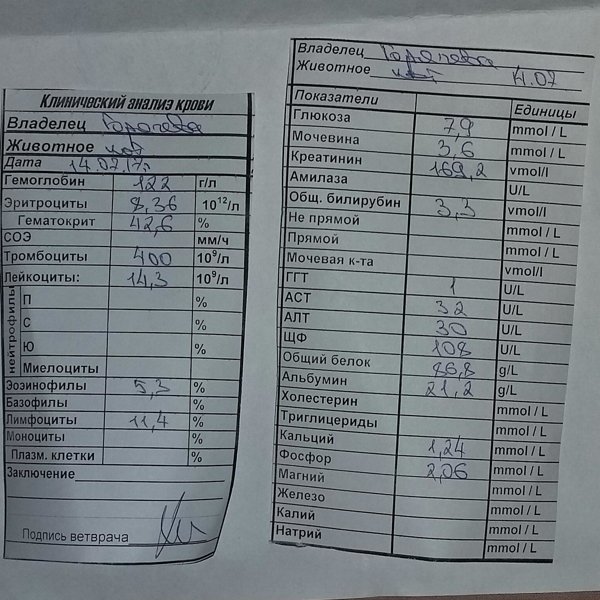 Клинический анализ крови
Владелец Горапева
Животное кот
Дата 14.07.17г.
Гемоглобин 122 г/л
Эритроциты 8,36 10¹²/л
Гематокрит 42,6 %
СОЭ мм/ч
Тромбоциты 400 10⁹/л
Лейкоциты: 14,3 10⁹/л
нейтрофилы
П %
С %
Ю %
Миелоциты
Эозинофилы 5,3 %
Базофилы %
Лимфоциты 11,4 %
Моноциты %
Плазм. клетки %
Заключение
Подпись ветврача
Владелец Горапева
Животное кот 14.07
Показатели Единицы
Глюкоза 7,9 mmol / L
Мочевина 3,6 mmol / L
Креатинин 169,2 vmol/l
Амилаза U/L
Общ. билирубин 3,3 vmol/l
Не прямой mmol / L
Прямой mmol / L
Мочевая к-та vmol/l
ГГТ 1 U/L
АСТ 32 U/L
АЛТ 30 U/L
ЩФ 108 U/L
Общий белок 86,8 g/L
Альбумин 21,2 g/L
Холестерин mmol / L
Триглицериды mmol / L
Кальций 1,24 mmol / L
Фосфор 2,06 mmol / L
Магний mmol / L
Железо mmol / L
Калий mmol / L
Натрий mmol / L